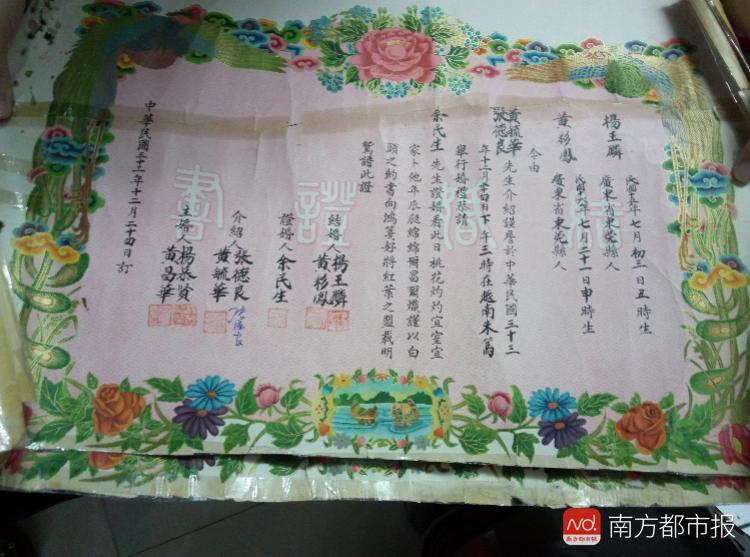 結婚證書
楊玉麟
民國五年七月初三日丑時生
廣東省東莞縣人
黃杉鳳
民國六年七月二十一日申時生
廣東省東莞縣人
今由
黃毓華
張德良
先生介紹謹詹於中華民國三十三
年十二月二十四日下午三時在越南朱篤
舉行婚禮恭請
余氏生先生證婚看此日桃花灼灼宜室宜
家卜他年瓜瓞綿綿爾昌爾熾謹以白
頭之約書向鴻箋好將紅葉之盟載明
鴛譜此證
結婚人
楊玉麟
黃杉鳳
證婚人余氏生
介紹人
張德良
黃毓華
主婚人
黃昌華
中華民國三十三年十二月二十四日訂
南方都市报